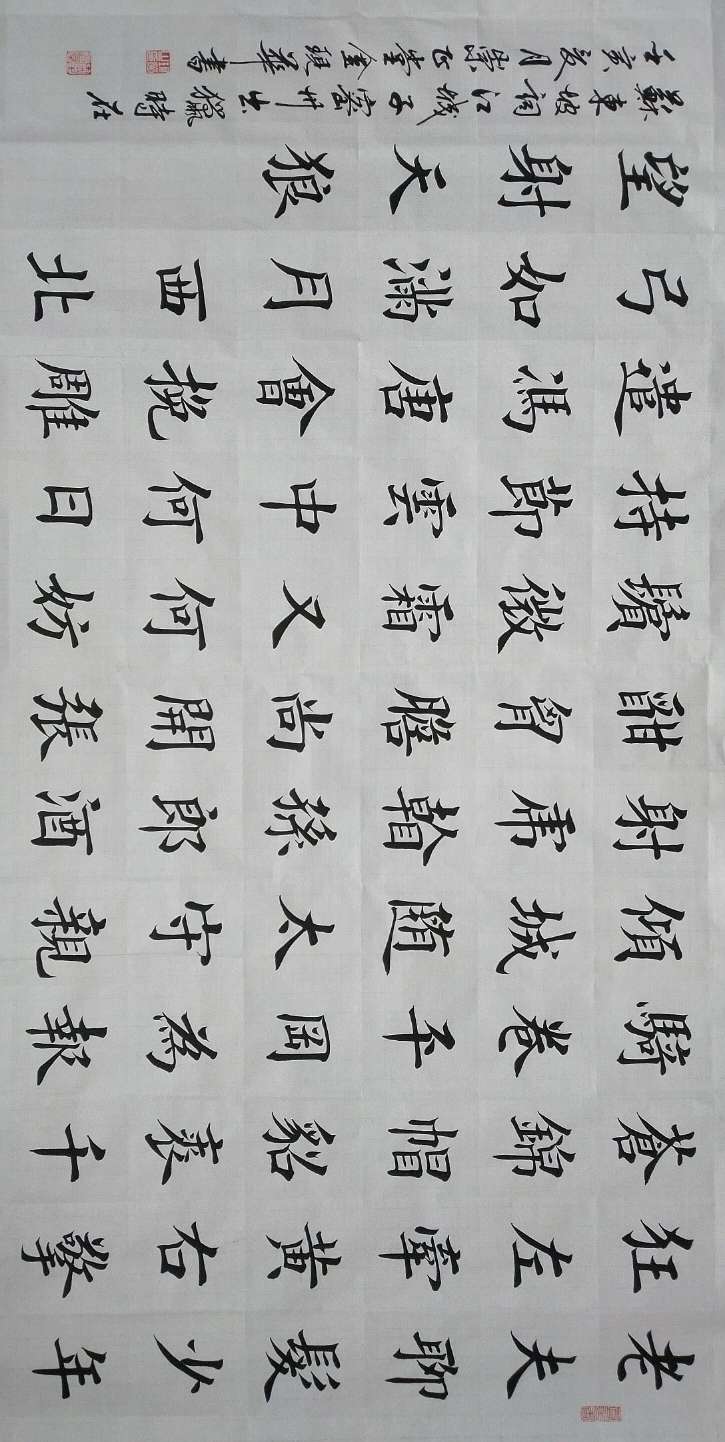 老夫聊髮少年
狂左牽黃右擎
蒼錦帽貂裘千
騎卷平岡為報
傾城隨太守親
射虎看孫郎酒
酣胷膽尚開張
鬢微霜又何妨
持節雲中何日
遣馮唐會挽雕
弓如滿月西北
望射天狼
蘇東坡詞江城子密州出獵時在
亥夏月崇正堂金現華書